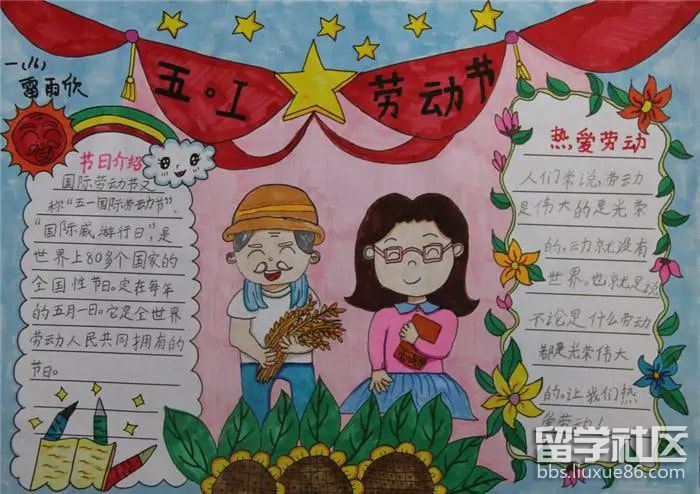 五。工 劳动节
一.(16)
雷雨欣
节日介绍
国际劳动节又
称“五一国际劳动节”、
“国际威游行日”,是
世界上80多个国家的
全国性节日。定在每年
的五月一日。它是全世界
劳动人民共同拥有的
节日。
热爱劳动
人们常说,劳动
是伟大的是光荣
的,动就没有
世界。也就是说
不论是什么劳动
都是光荣伟大
的。让我们热
爱劳动!
留学社区
bbs.liuxue86.com